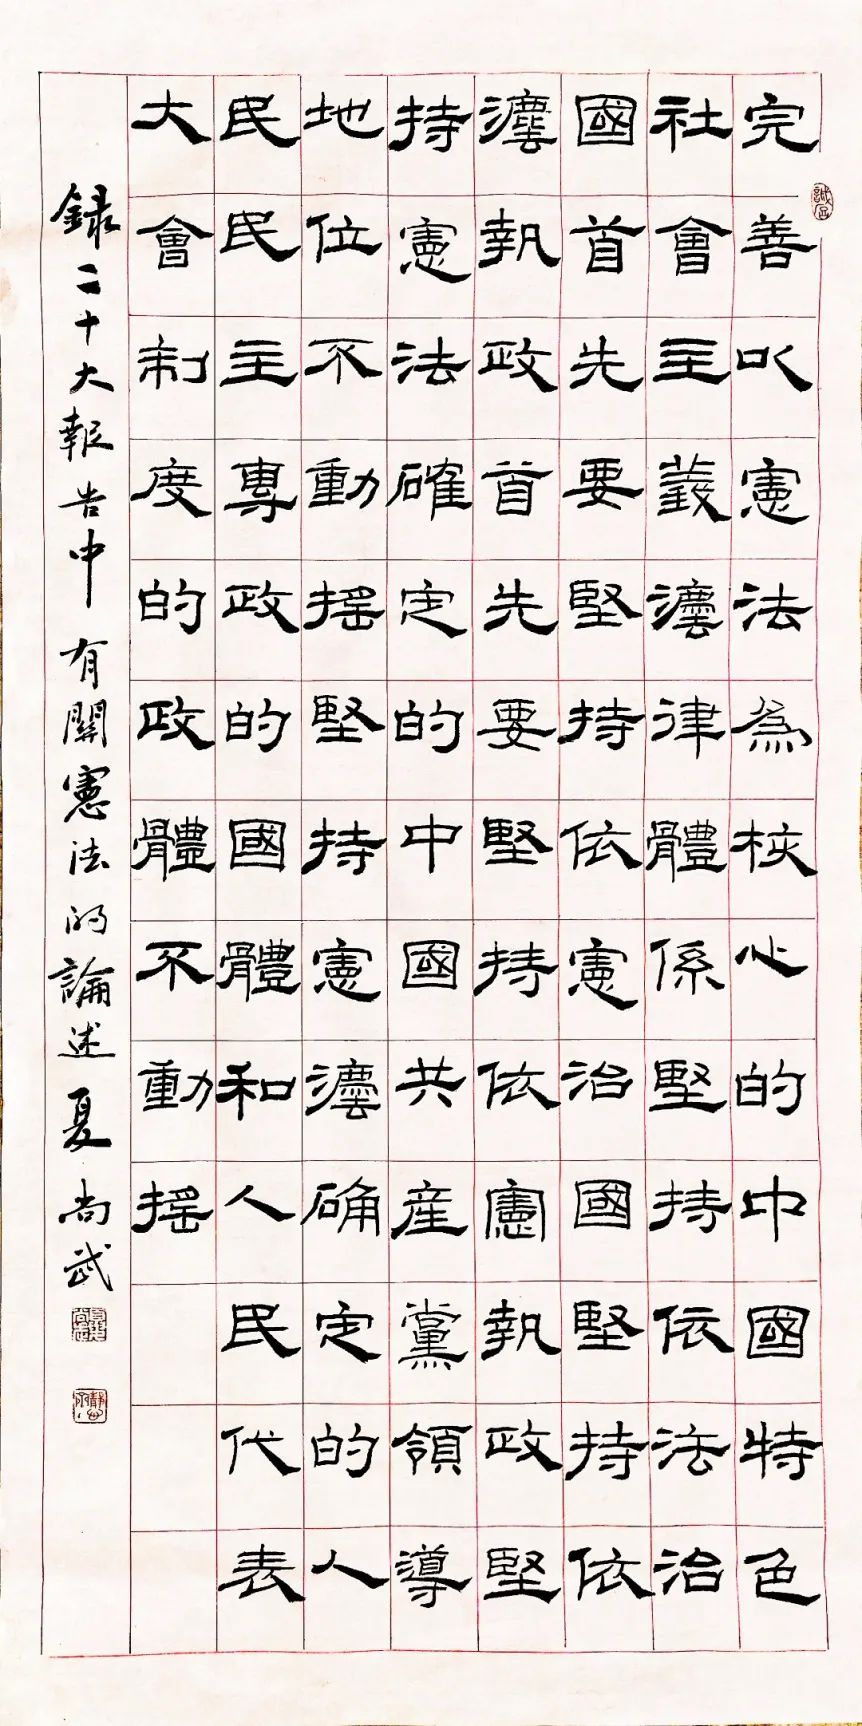 完善以憲法為核心的中國特色
社會主義灋律體係堅持依法治
國首先要堅持依憲治國堅持依
灋執政首先要堅持依憲執政堅
持憲法確定的中國共産黨領導
地位不動搖堅持憲灋确定的人
民民主專政的國體和人民代表
大會制度的政體不動搖
録二十大報告中有關憲法的論述 夏尚武